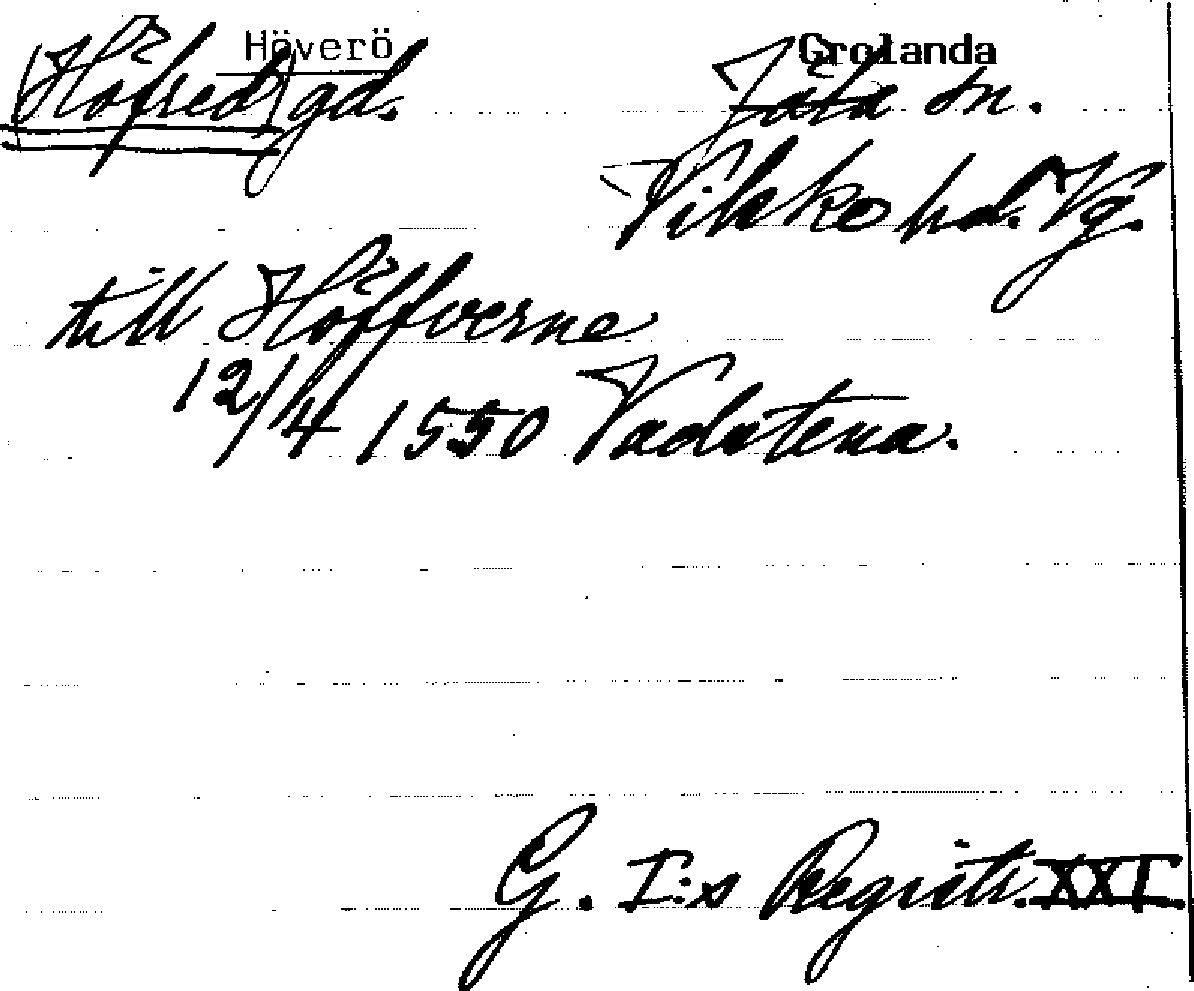 Höverö Grolanda
(Höfred) gd. Jäla sn.
Vilske hd. Vg.
till Höffverne
12/4 1550 Vadstena.
G. I:s Registr. XXI.